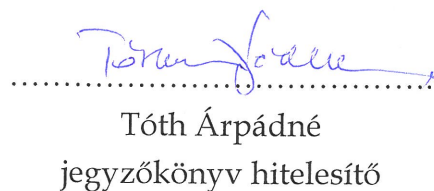 Tóth Árpádné
jegyzőkönyv hitelesítő